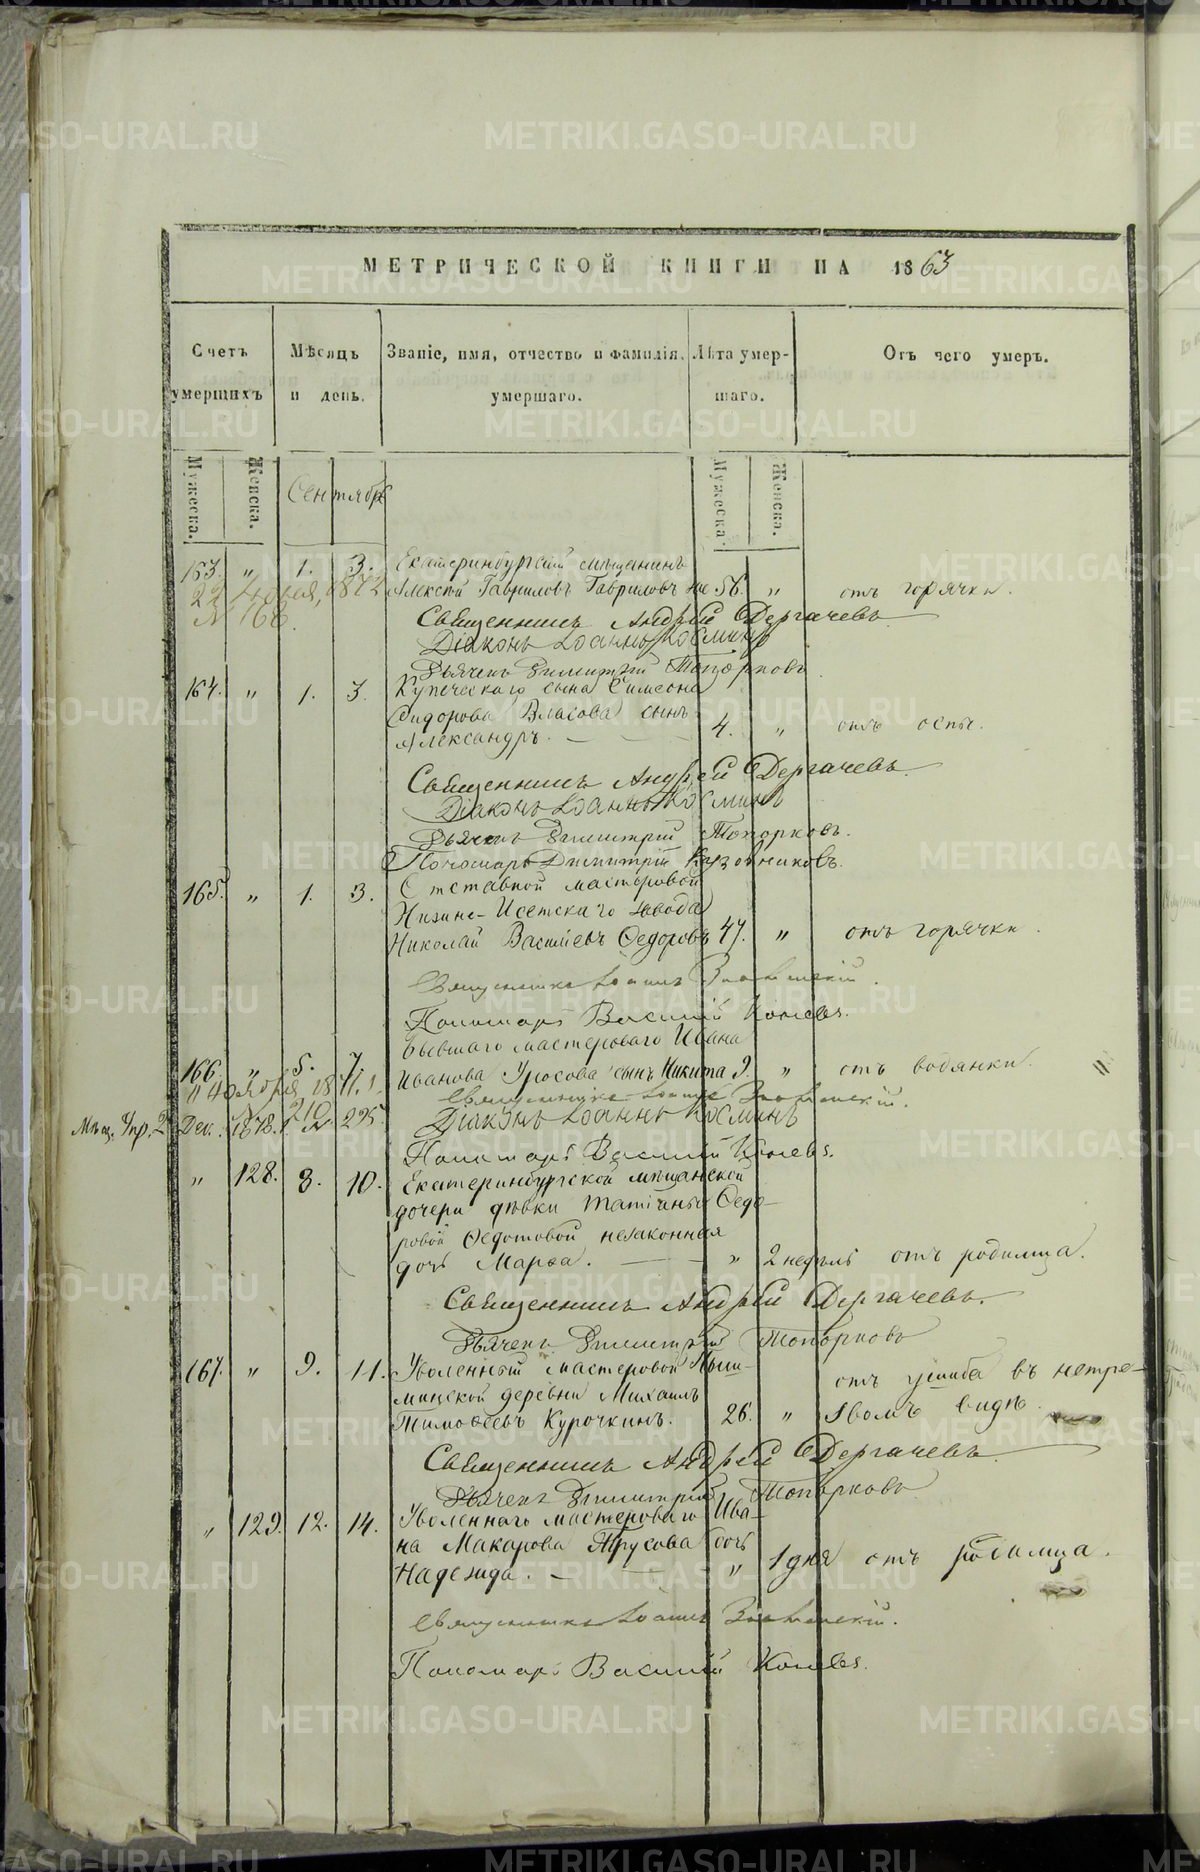 МЕТРИЧЕСКОЙ КНИГИ НА 1863
Счетъ умершихъ
Мѣсяцъ и день.
Званіе, имя, отчество и фамилія умершаго.
Лѣта умершаго.
Отъ чего умеръ.
Мужеска. Женска.
Сентябрь
Мужеска. Женска.
163. " 1. 3. Екатеринбургскій мѣщанинъ
Алексѣй Гавриловъ Гавриловъ 56. " отъ горячки.
1872
№ 168.
Священникъ Андрей Дергачевъ
Діаконъ Іоаннъ Косминъ
Дьячекъ Димитрій Топорковъ
164. " 1. 3. Купеческаго сына Симеона
Сидорова Власова сынъ
Александръ. 4. " отъ оспы.
Священникъ Андрей Дергачевъ
Діаконъ Іоаннъ Косминъ
Дьячекъ Димитрій Топорковъ.
Пономарь Димитрій Кузовниковъ.
165. " 1. 3. Отставной мастеровой
Нижне-Исетскаго завода
Николай Васильевъ Ѳедоровъ 47. " отъ горячки.
Священникъ Іоаннъ
Пономарь Василій
166. " 5. 7. Бывшаго мастероваго Ивана
Иванова сынъ Никита 9. " отъ водянки.
Священникъ Іоаннъ
Дек. 1878. № 295
Діаконъ Іоаннъ Косминъ
Пономарь Василій
" 128. 8. 10. Екатеринбургской мѣщанской
дочери дѣвки Татіаны Ѳедо-
ровой Ѳедотовой незаконная
дочь Марѳа. " 2 недѣль отъ родимца.
Священникъ Андрей Дергачевъ.
Дьячекъ Димитрій Топорковъ
167. " 9. 11. Уволенный мастеровой Пыш-
минской деревни Михаилъ
Тимоѳеевъ Курочкинъ. 26. " отъ ушиба въ нетре-
звомъ видѣ.
Священникъ Андрей Дергачевъ
Дьячекъ Димитрій Топорковъ
" 129. 12. 14. Уволеннаго мастероваго Ива-
на Макарова Трусова дочь
Надежда. " 1 дня отъ родимца.
Священникъ Іоаннъ
Пономарь Василій
METRIKI.GASO-URAL.RU